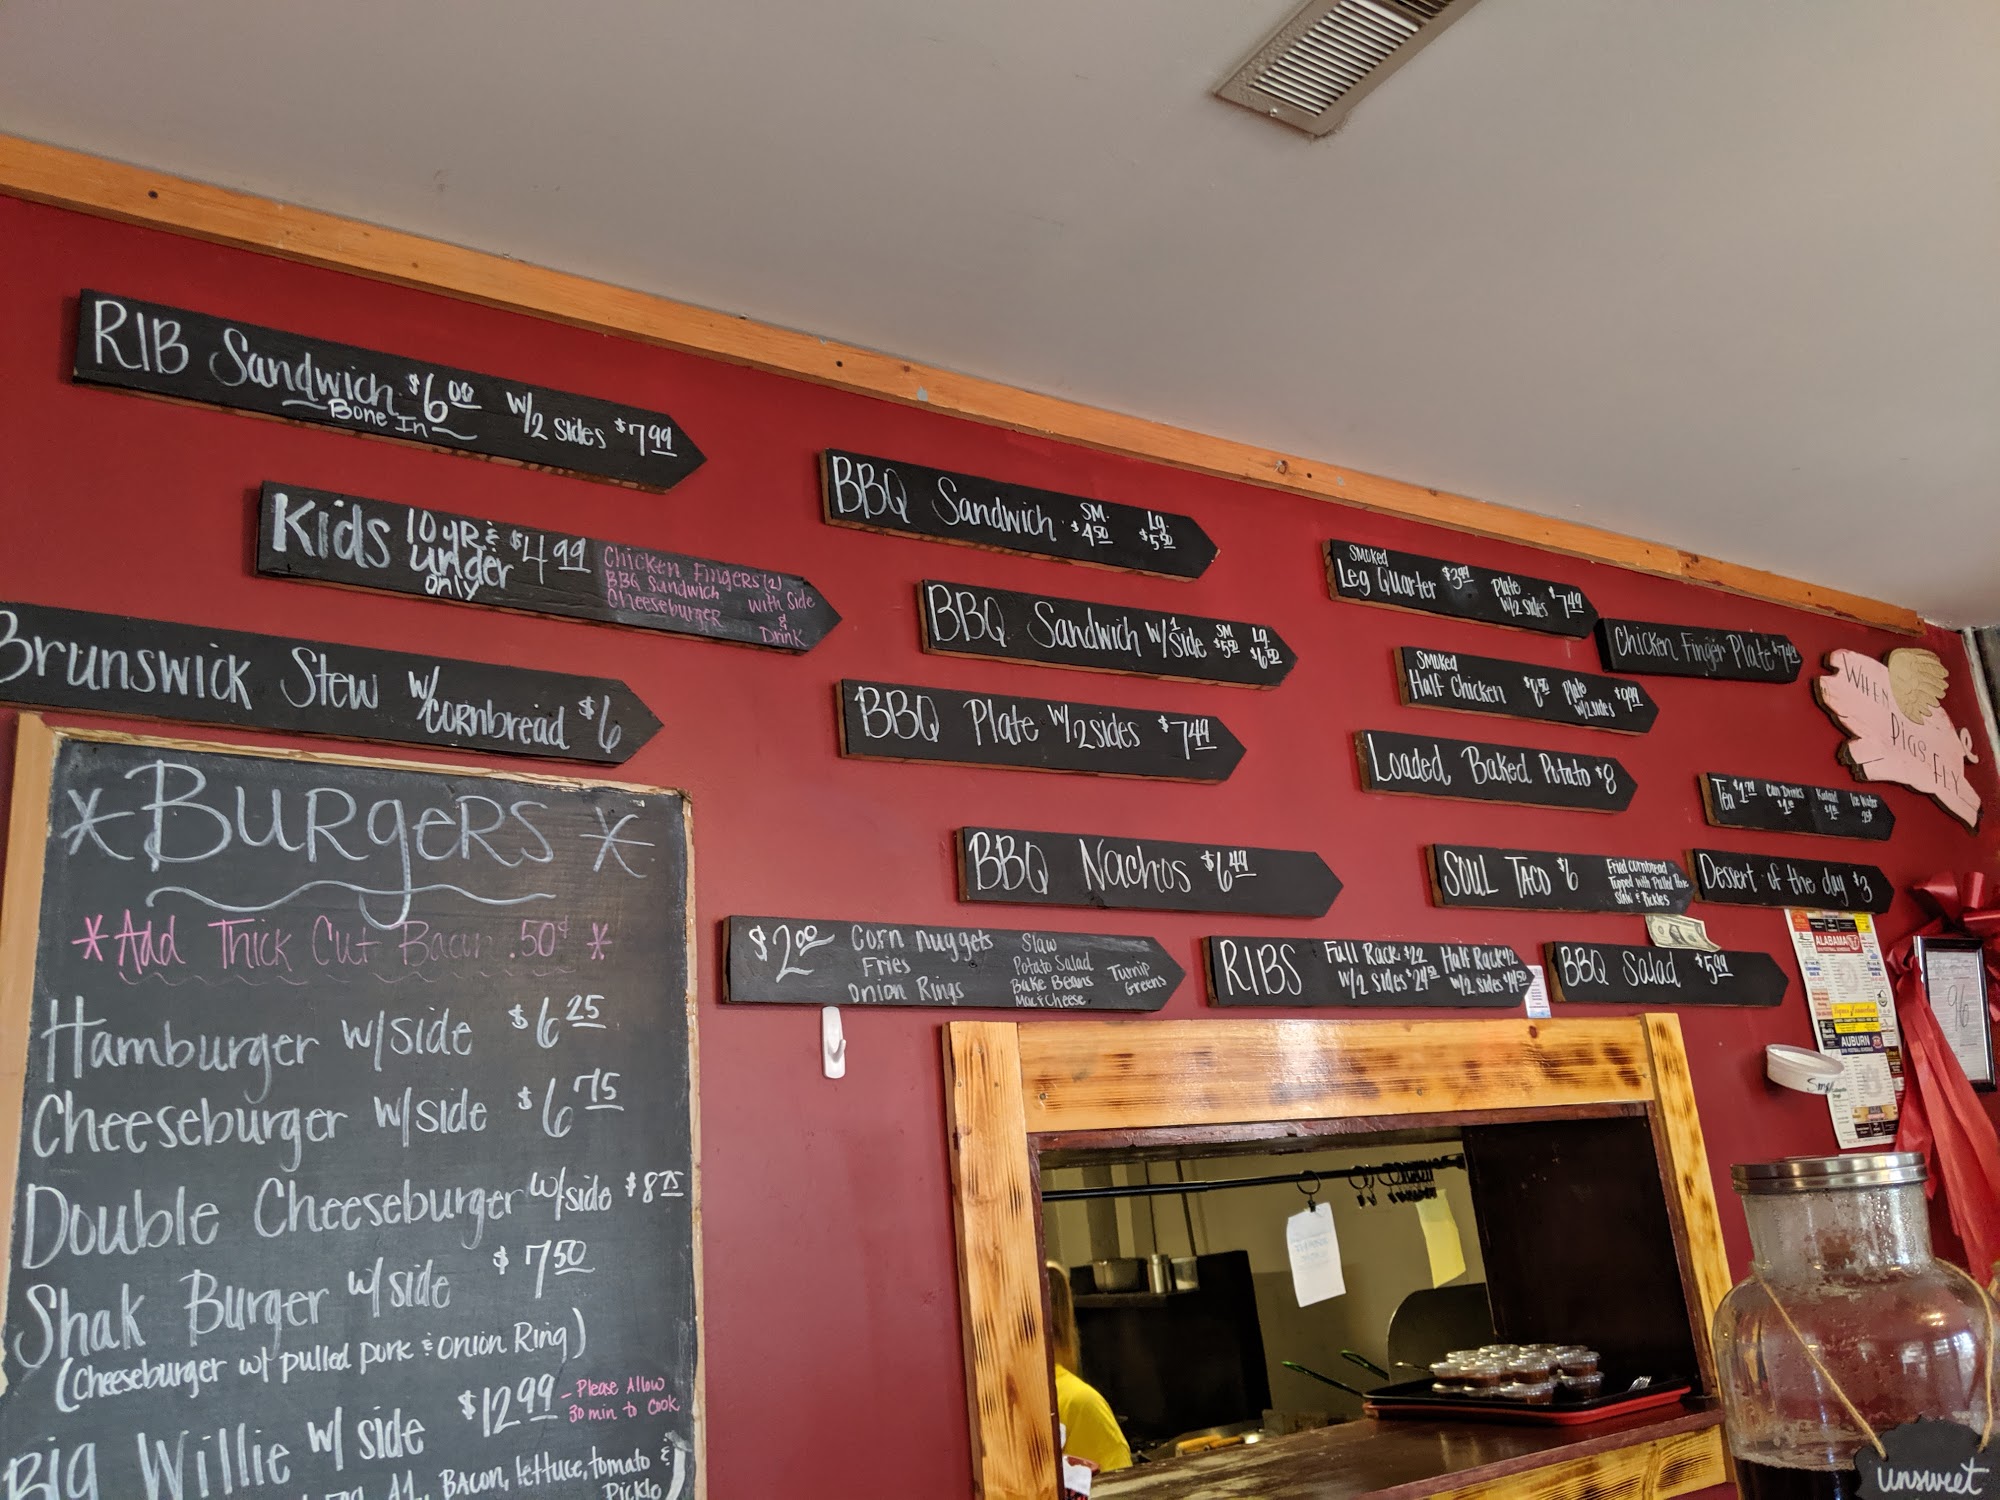 RIB Sandwich $6.00 w/2 sides $7.99
Bone In
Kids 10 yr & under only $4.99
Chicken Fingers (2)
BBQ Sandwich
Cheeseburger
with Side
&
Drink
Brunswick Stew w/cornbread $6
*Burgers*
*Add Thick Cut Bacon .50¢ *
Hamburger w/side $6.25
Cheeseburger w/side $6.75
Double Cheeseburger w/side $8.75
Shak Burger w/side $7.50
(Cheeseburger w/ pulled pork & onion Ring)
Big Willie w/ side $12.99
- Please Allow
30 min to Cook
A1, Bacon, lettuce, tomato &
Pickle
BBQ Sandwich SM. $4.50 Lg. $5.50
BBQ Sandwich w/1 side SM $5.50 Lg. $6.50
BBQ Plate w/2 sides $7.49
BBQ Nachos $6.49
$2.00
Corn nuggets
Fries
Onion Rings
Slaw
Potato Salad
Bake Beans
Mac & Cheese
Turnip
Greens
Smoked
Leg Quarter $3.99 Plate w/2 sides $7.49
Chicken Finger Plate $7.49
Smoked
Half Chicken Plate w/2 sides $9.99
Loaded Baked Potato $8
Tea Can Drinks Ice Water
SOUL TACO $6
Fried Cornbread
Topped with Pulled Pork
Slaw & Pickles
Dessert of the day $3
RIBS
Full Rack $22
w/2 sides
Half Rack $12
w/2 sides
BBQ Salad $5.99
WHEN
PIGS FLY
ALABAMA
AUBURN
96
unsweet